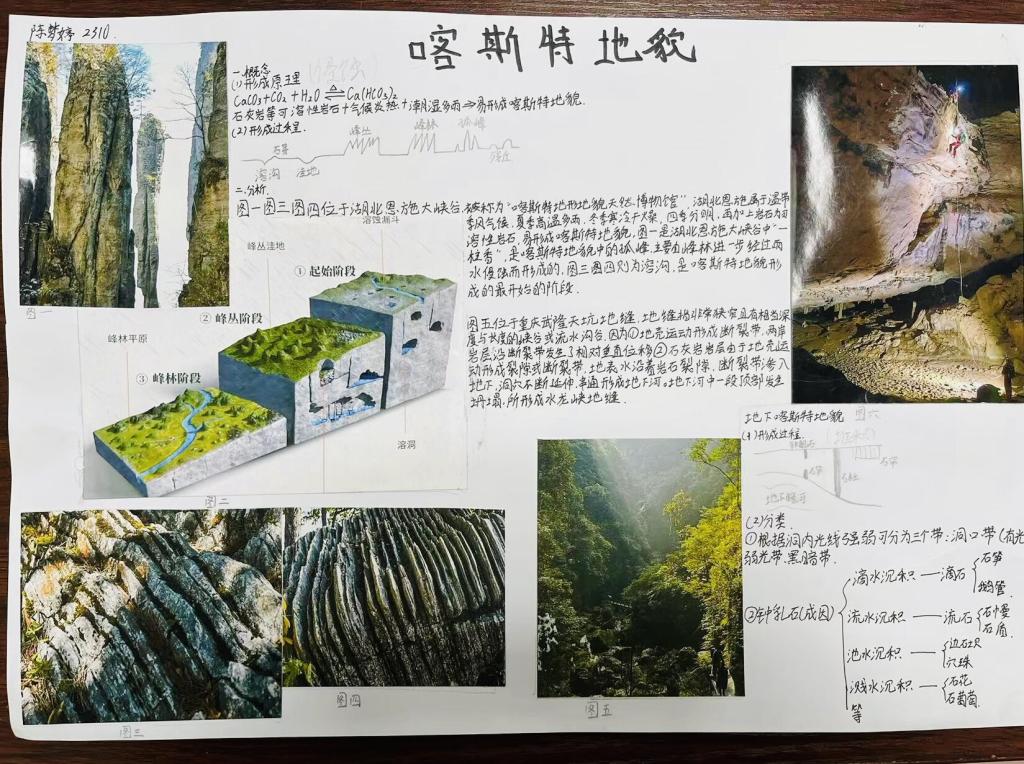 陈梦婷 2310.
喀斯特地貌
一.概念
(1)形成原理
CaCO3+CO2+H2O ⇌ Ca(HCO3)2
石灰岩等可溶性岩石+气候炎热+潮湿多雨⇒易形成喀斯特地貌.
(2)形成过程.
峰丛 峰林 孤峰
石芽
溶沟 洼地
二.分析.
图一图三图四位于湖北恩施大峡谷,被称为“喀斯特地形地貌天然博物馆”,湖北恩施属于温带
季风气候,夏季高温多雨,冬季寒冷干燥,四季分明,再加上岩石为可
溶性岩石,易形成喀斯特地貌,图一是湖北恩施大峡谷中“一
柱香”,是喀斯特地貌中的孤峰,主要由峰林进一步经过雨
水侵蚀而形成的,图三图四则为溶沟,是喀斯特地貌形
成的最开始的阶段.
图五位于重庆武隆天坑地缝,地缝指非常狭窄且有相当深
度与长度的峡谷或流水沟谷,因为①地壳运动形成断裂带,两岸
岩层沿断裂带发生了相对垂直位移②石灰岩岩层由于地壳运
动形成裂隙或断裂带,地表水沿着岩石裂隙、断裂带渗入
地下,洞穴不断延伸,串通形成地下河。地下河中一段顶部发生
坍塌,所形成水龙峡地缝.
图一
溶蚀漏斗
峰丛洼地
① 起始阶段
② 峰丛阶段
峰林平原
③ 峰林阶段
溶洞
图二
图三
图四
图五
地下喀斯特地貌 图六
(1)形成过程.
石笋
石柱
地下暗河
(2)分类.
①根据洞内光线强弱可分为三个带:洞口带(有光
弱光带、黑暗带.
②钟乳石(成因)
滴水沉积 — 滴石 石笋 鹅管
流水沉积 — 流石 石幔 石盾
池水沉积 — 边石坝 穴珠
溅水沉积 — 石花 石葡萄
等